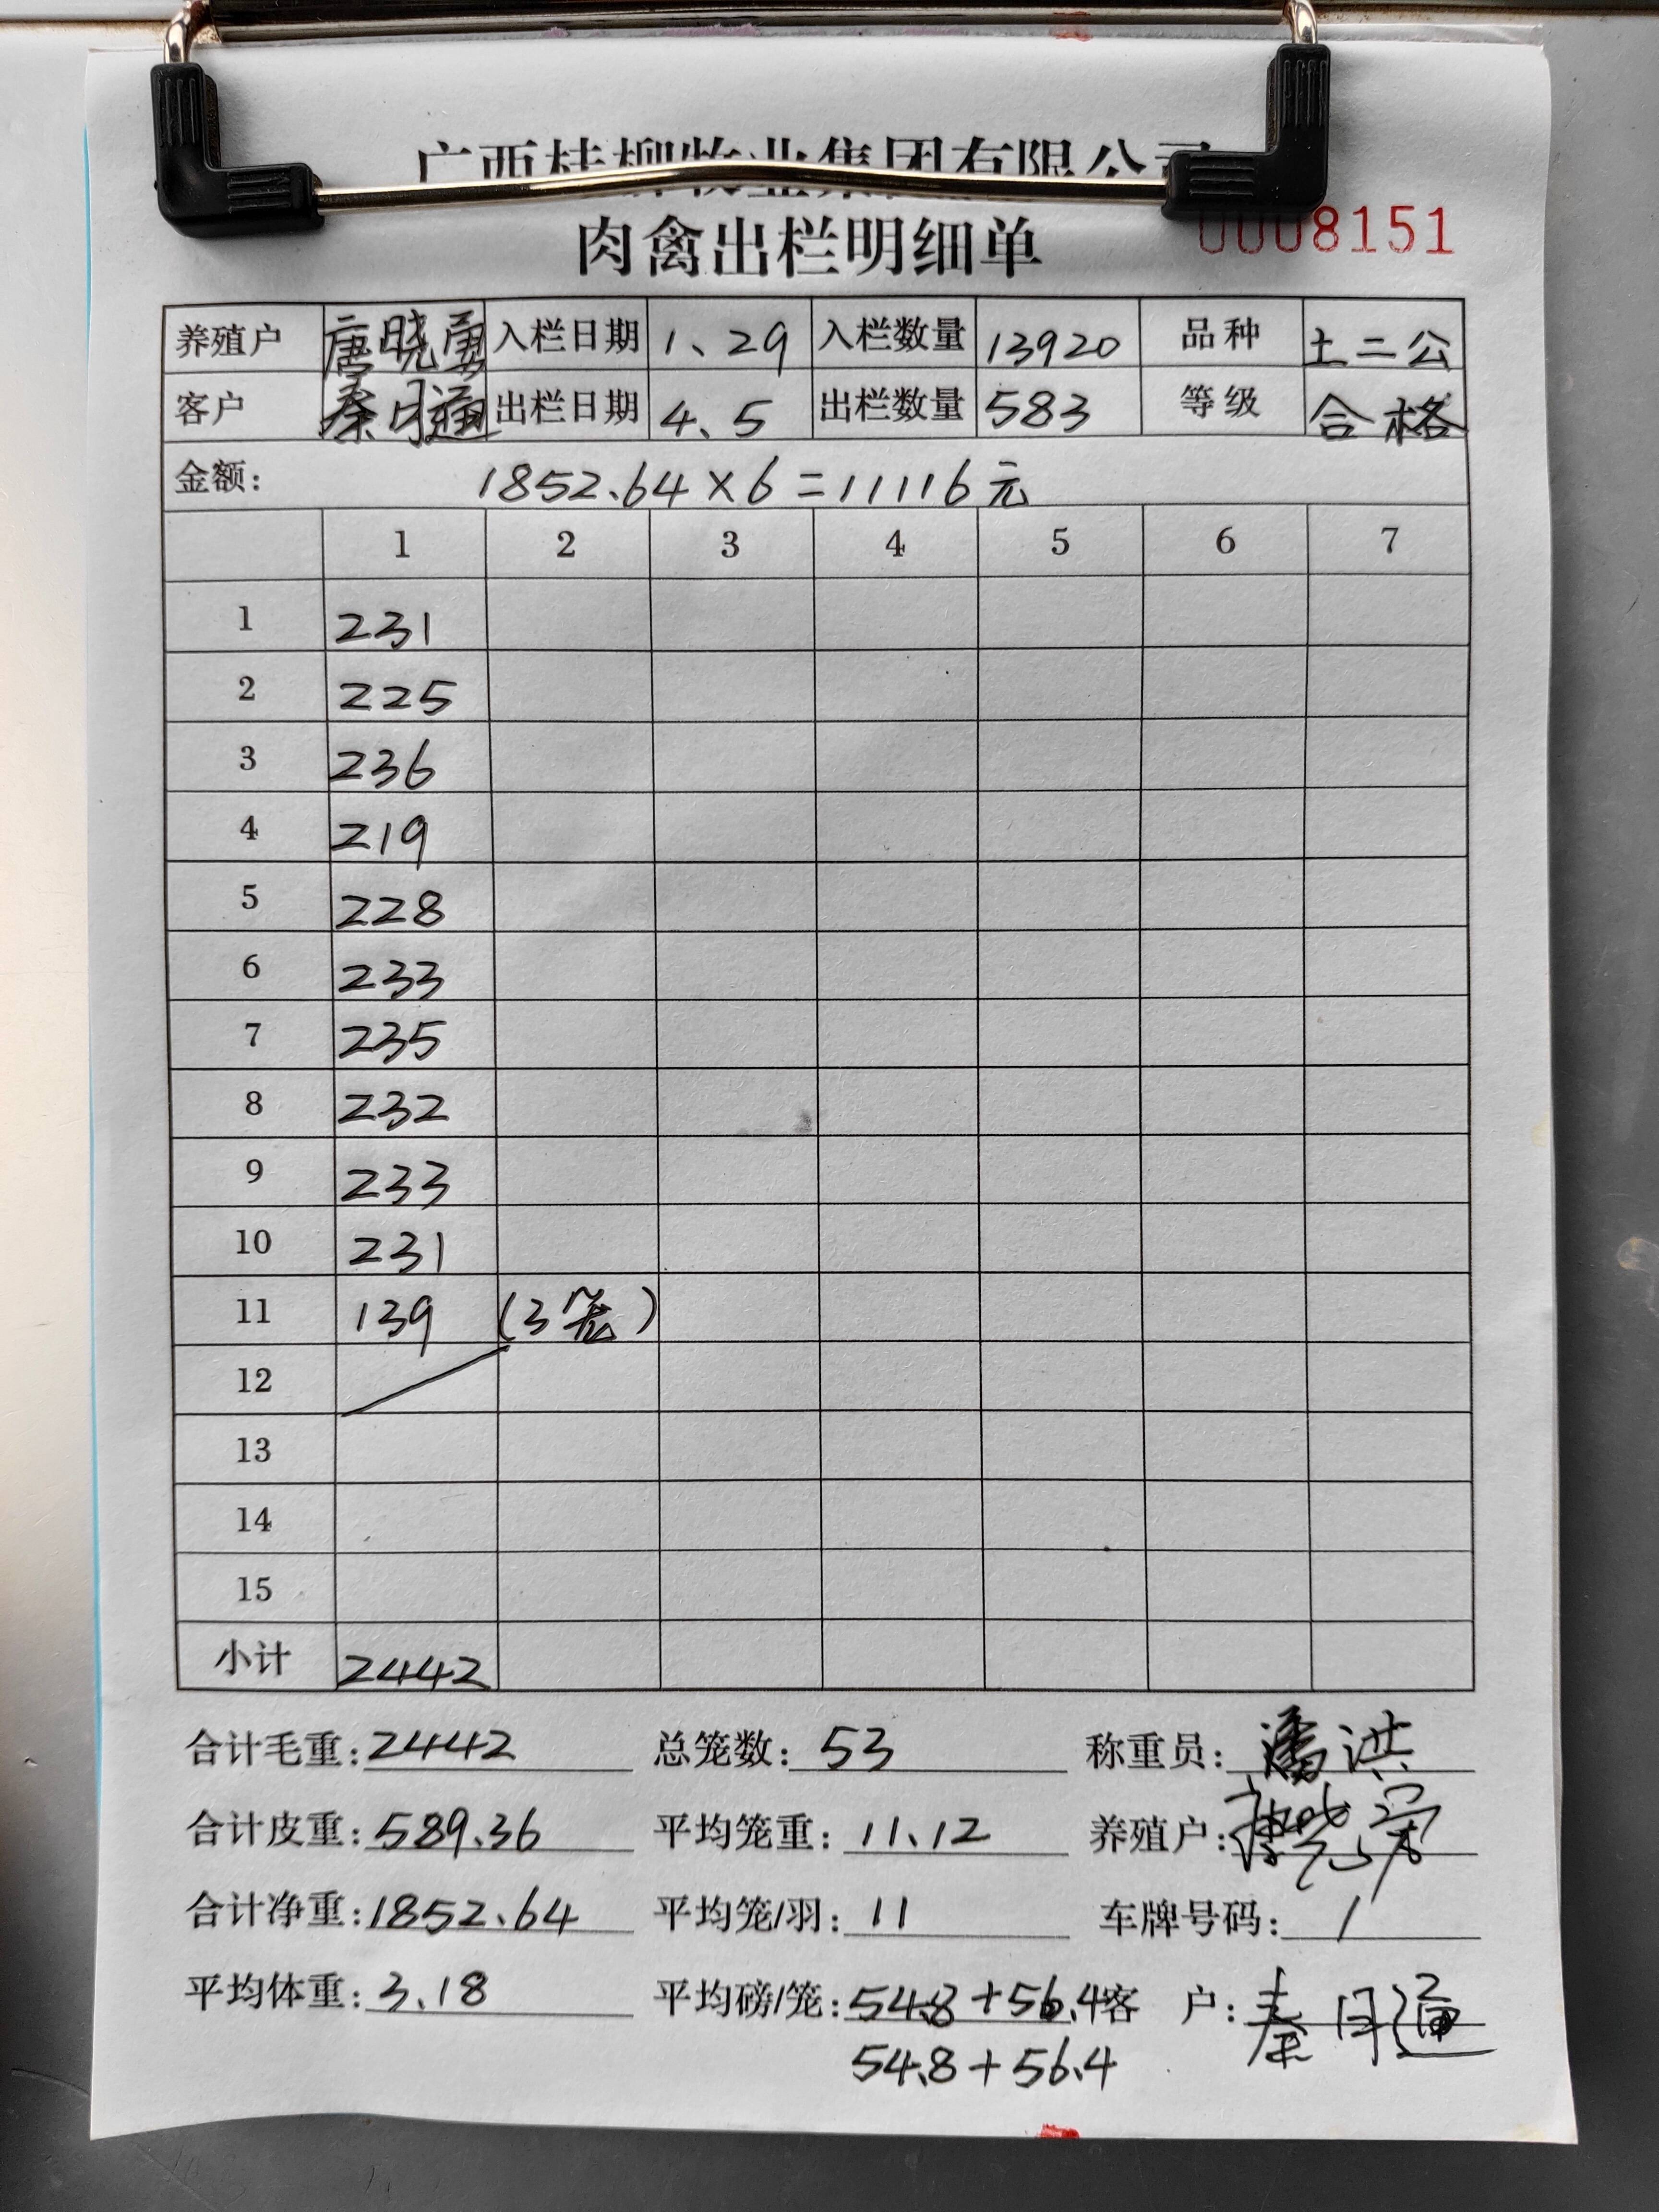 广西桂柳牧业集团有限公司
肉禽出栏明细单 0008151
养殖户 唐晓勇 入栏日期 1、29 入栏数量 13920 品种 土二公
客户 秦明通 出栏日期 4、5 出栏数量 583 等级 合格
金额: 1852.64×6=11116元
1 2 3 4 5 6 7
1 231
2 225
3 236
4 219
5 228
6 233
7 235
8 232
9 233
10 231
11 139 (3笼)
12
13
14
15
小计 2442
合计毛重: 2442 总笼数: 53 称重员: 潘洪
合计皮重: 589.36 平均笼重: 11.12 养殖户:
合计净重: 1852.64 平均笼/羽: 11 车牌号码: /
平均体重: 3.18 平均磅/笼: 54.8+56.4 客户: 秦明通
54.8+56.4